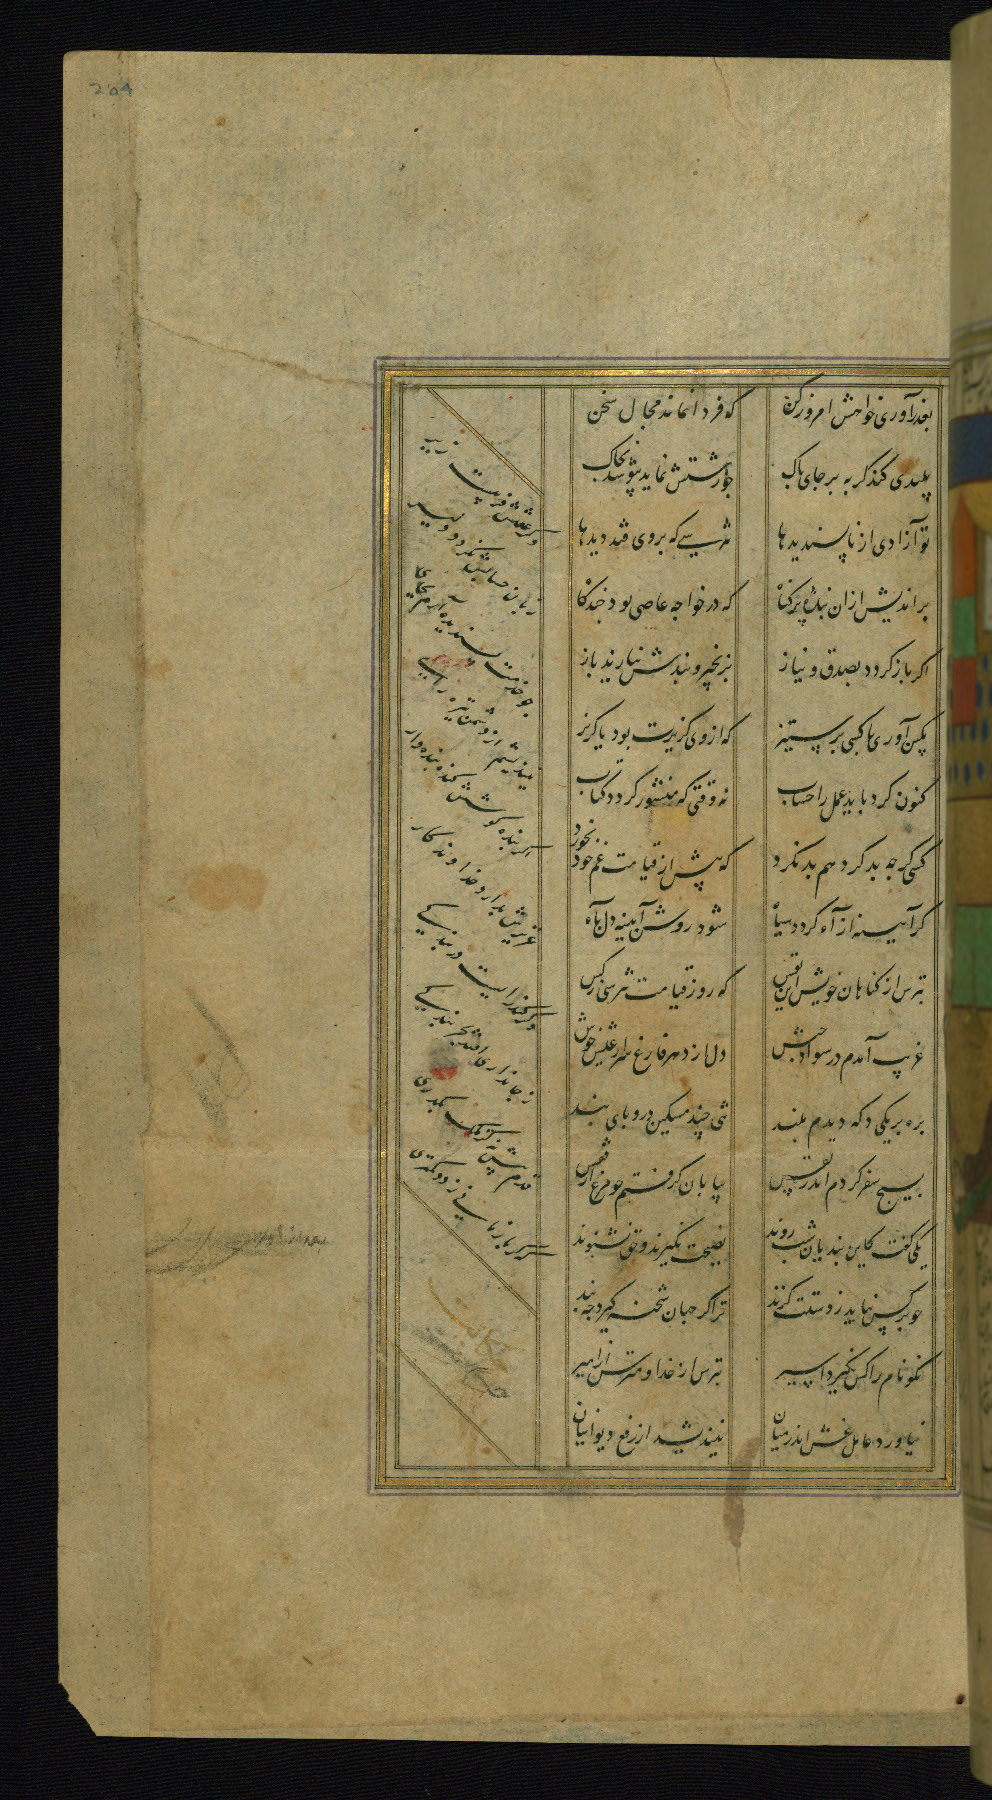 204
بعذرآوری خواهش امروز کن که فردا نماند مجال سخن
پلیدی کند گربه بر جای پاک چو زشتش نماید بپوشد بخاک
تو آزادی از ناپسندیدها نترسی که بروی فتد دیدها
براندیش از آن بنده پرگناه که در خواجه عاصی بود چندگاه
اگر بازگردد بصدق و نیاز بزنجیر و بندش نیارند باز
بکین آوری با کسی بر ستیز که از وی گزیرت بود یا گریز
کنون کرد باید عمل را حساب نه وقتی که منشور گردد کتاب
کسی گرچه بد کرد هم بد نکرد که پیش از قیامت غم خود بخورد
گر آیینه از آه گردد سیاه شود روشن آیینه دل بآه
بترس از گناهان خویش این نفس که روز قیامت نترسی ز کس
غریب آمدم در سواد حبش دل از دهر فارغ سر از عیش خوش
بره بر یکی دکه دیدم بلند تنی چند مسکین درو پای بند
بسیج سفر کردم اندر نفس بیابان گرفتم چو مرغ از قفس
یکی گفت کاین بندیان شب روند نصیحت نگیرند و حق نشنوند
چو بر کس نیاید ز دستت گزند ترا گر جهان شحنه گیرد چه بند
نکونام را کس نگیرد اسیر بترس از خدا و مترس از امیر
نیاورد عامل غش اندر میان نیندیشد از رفع دیوانیان
وگر عفتش فریبست زیر
زبان حسابش نگردد دلیر
چو خدمت پسندیده آرم بجای
نیندیشم از دشمن تیره رای
اگر بنده کوشش کند بنده وار
عزیزش بدارد خداوندگار
وگر کند رایست در بندگی
ز جانداری افتد بخربندگی
قدم پیش نه کز ملک بگذری
که گر باز مانی ز دد کمتری
حکایت